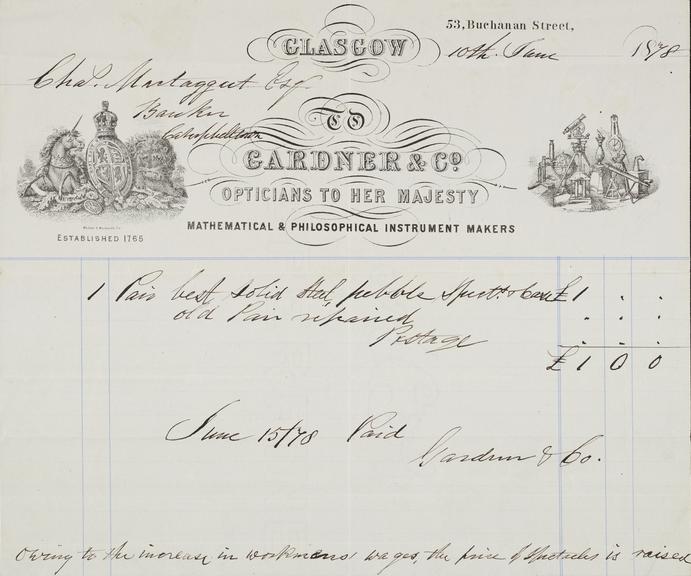 53, Buchanan Street,
GLASGOW
10th June 1878
Chas. Mactaggart Esq.
Banker
Campbelltown
TO
GARDNER & Co.
OPTICIANS TO HER MAJESTY
MATHEMATICAL & PHILOSOPHICAL INSTRUMENT MAKERS
ESTABLISHED 1765
1 Pair best solid steel pebble Spects & Case £ 1 . .
old Pair repaired . . .
Postage . . .
£ 1 0 0
June 15/78 Paid
Gardner & Co.
Owing to the increase in workmens' wages, the price of spectacles is raised